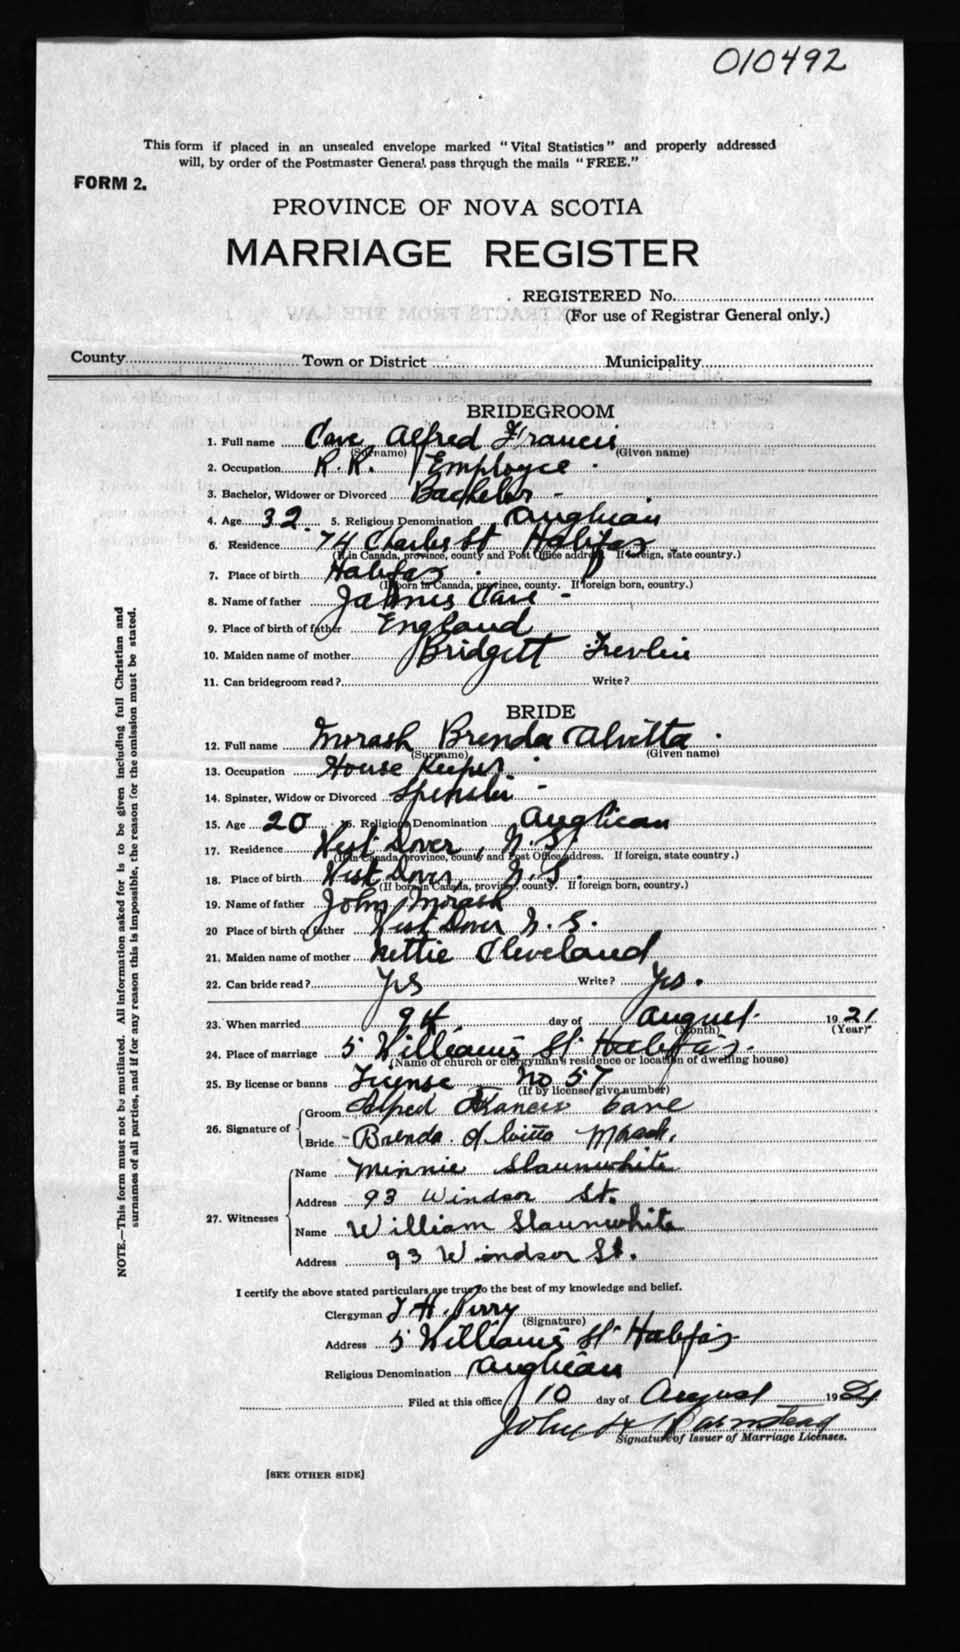 010492
This form if placed in an unsealed envelope marked "Vital Statistics" and properly addressed
will, by order of the Postmaster General pass through the mails "FREE."
FORM 2.
PROVINCE OF NOVA SCOTIA
MARRIAGE REGISTER
REGISTERED No.
(For use of Registrar General only.)
County Town or District Municipality
BRIDEGROOM
1. Full name Cave Alfred Francis
(Surname) (Given name)
2. Occupation R.R. Employee
3. Bachelor, Widower or Divorced Bachelor
4. Age 32 5. Religious Denomination Anglican
6. Residence 74 Charles St Halifax
(If in Canada, province, county and Post Office address. If foreign, state country.)
7. Place of birth Halifax
(If born in Canada, province, county. If foreign born, country.)
8. Name of father James Cave
9. Place of birth of father England
10. Maiden name of mother Bridgett
11. Can bridegroom read? Write?
BRIDE
12. Full name Morash Brenda Alvitta
(Surname) (Given name)
13. Occupation House Keeper
14. Spinster, Widow or Divorced Spinster
15. Age 20 16. Religious Denomination Anglican
17. Residence West Dover, N.S.
(If in Canada, province, county and Post Office address. If foreign, state country.)
18. Place of birth West Dover, N.S.
(If born in Canada, province, county. If foreign born, country.)
19. Name of father John Morash
20 Place of birth of father West Dover N.S.
21. Maiden name of mother Nettie Cleveland
22. Can bride read? Yes Write? Yes.
23. When married 9th day of August 1921
(Month) (Year)
24. Place of marriage 5 Williams St Halifax.
(Name of church or clergyman's residence or location of dwelling house)
25. By license or banns License No 57
(If by license, give number)
26. Signature of Groom Alfred Francis Cave
Bride Brenda Alvitta Morash.
27. Witnesses Name Minnie Slaunwhite
Address 93 Windsor St.
Name William Slaunwhite
Address 93 Windsor St.
I certify the above stated particulars are true to the best of my knowledge and belief.
Clergyman T H. Perry
(Signature)
Address 5 Williams St Halifax
Religious Denomination Anglican
Filed at this office 10 day of August 1921
John H Barnstead
Signature of Issuer of Marriage Licenses.
[SEE OTHER SIDE]
NOTE.—This form must not be mutilated. All information asked for is to be given including full Christian and
surnames of all parties, and if for any reason this is impossible, the reason for the omission must be stated.